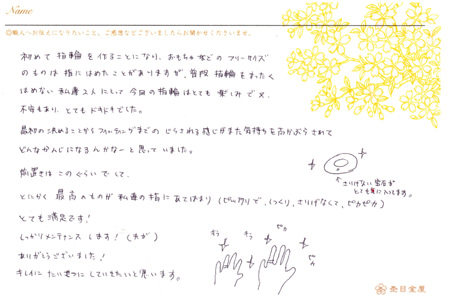 Name
◎職人へお伝えになりたいこと、ご感想などございましたらお聞かせくださいませ。
初めて指輪を作ることになり、おもちゃなどのフリーサイズ
のものは指にはめたことがありますが、普段指輪をまったく
はめない私達2人にとって今回の指輪はとても楽しみで又、
不安もあり、とてもドキドキでした。
最初の決めることからフィッティングまでのじらされる感じがまた気持ちを高ぶらされて
どんなかんじになるんかなーと思っていました。
前置きはこのぐらいでして、
とにかく最高のものが私達の指にあてはまり(ピッタリで、しっくり、さりげなくて、ピカピカ)
とても満足です!
しっかりメンテナンスします!(夫が)
ありがとうございました!
キレイにたいせつにしていきたいと思います。
さりげない宝石が
とても気に入ってます。
キラ
キラ
ピカ
ピカ
杢目金屋